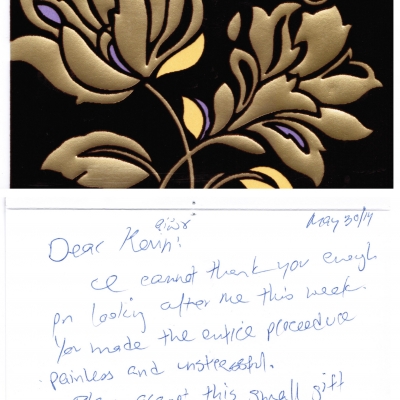 May 30/14
Dear Kemp!
I cannot thank you enough
for looking after me this week.
You made the entire proceedure
painless and unstressful.
Please accept this small gift